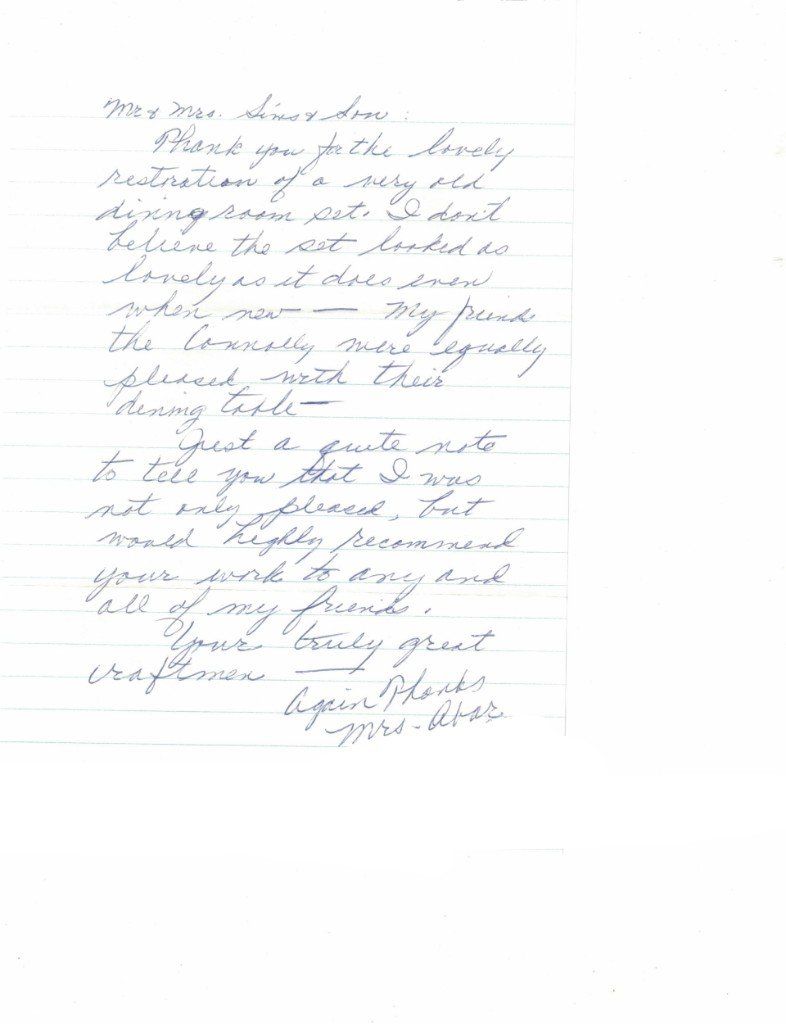 Mr & Mrs. Sims & Son:
Thank you for the lovely
restoration of a very old
dining room set. I don't
believe the set looked as
lovely as it does even
when new — My friends
the Connolly were equally
pleased with their
dining table —
Just a quite note
to tell you that I was
not only pleased, but
would highly recommend
your work to any and
all of my friends.
Your truly great
craftmen —
Again Thanks
Mrs -